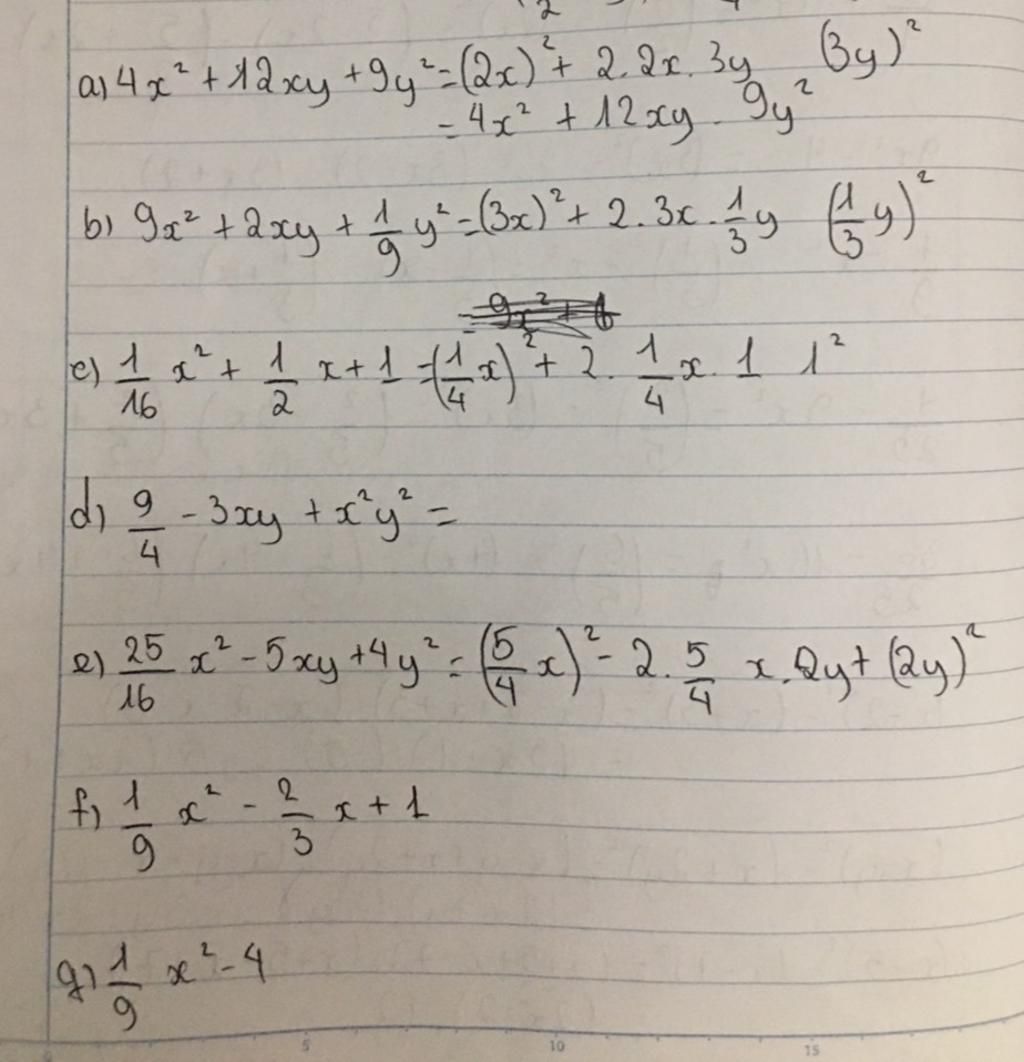 a) 4x² + 12xy + 9y² = (2x)² + 2.2x.3y (3y)²
= 4x² + 12xy - 9y²
b) 9x² + 2xy + 1/9 y² = (3x)² + 2.3x.1/3 y (1/3 y)²
c) 1/16 x² + 1/2 x + 1 = (1/4 x)² + 2.1/4 x.1 1²
d) 9/4 - 3xy + x²y² =
e) 25/16 x² - 5xy + 4y² = (5/4 x)² - 2.5/4 x.2y + (2y)²
f) 1/9 x² - 2/3 x + 1
g) 1/9 x² - 4
5 10 15